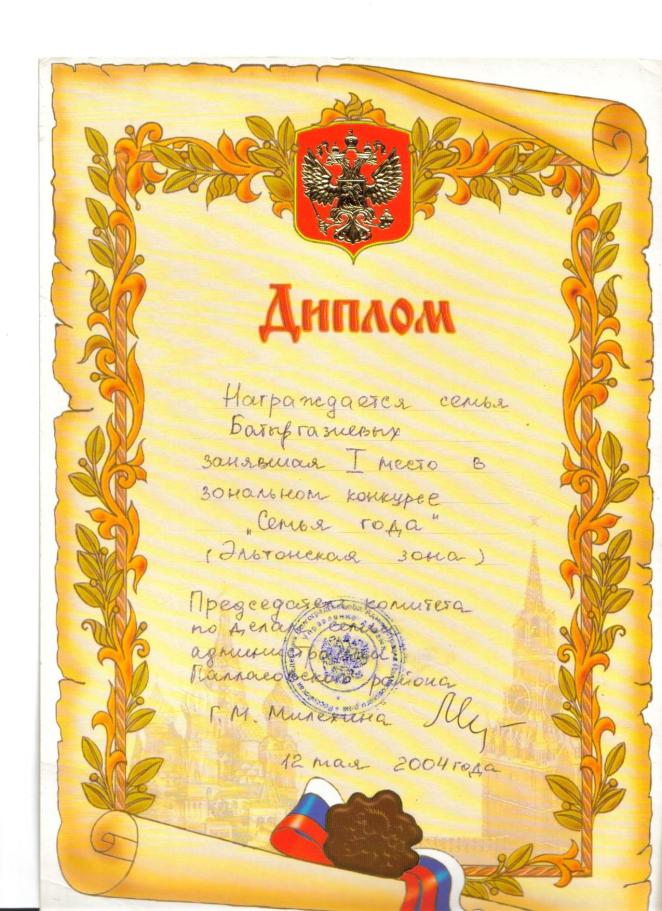 Диплом
Награждается семья
Батыргазиевых
занявшая I место в
зональном конкурсе
„Семья года"
(Эльтонская зона)
Председатель комитета
по делам семьи
администрации
Палласовского района
Г.М. Милехина
12 мая 2004 года